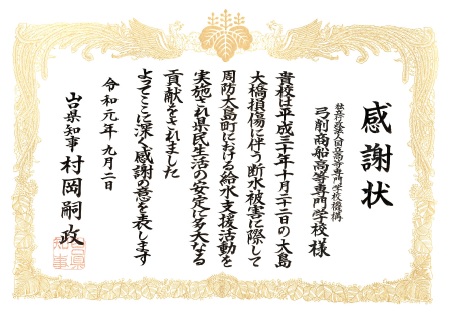 感謝状
独立行政法人国立高等専門学校機構
弓削商船高等専門学校様
貴校は平成三十年十月二十二日の大島
大橋損傷に伴う断水被害に際して
周防大島町における給水支援活動を
実施され県民生活の安定に多大なる
貢献をされました
よってここに深く感謝の意を表します
令和元年九月二日
山口県知事 村岡嗣政